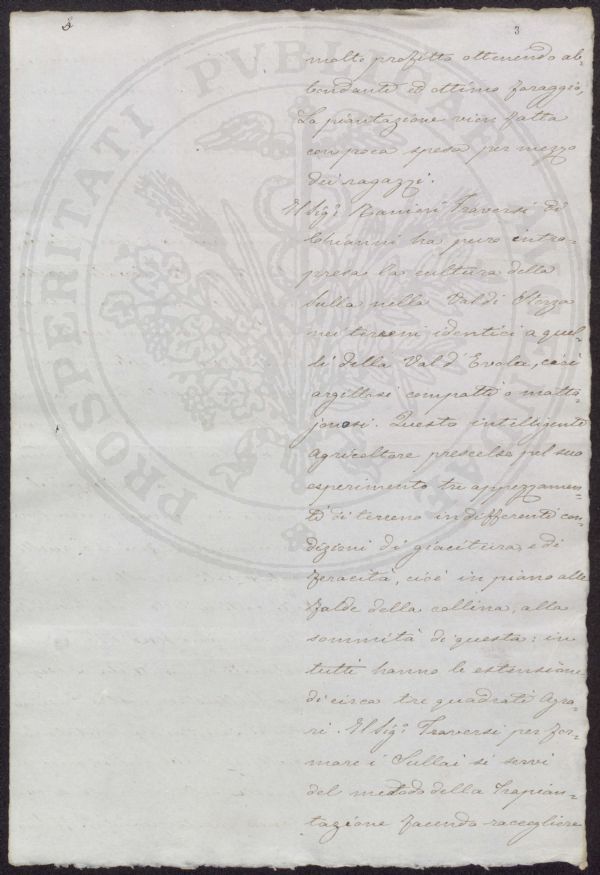 3
molto profitto ottenendo ab-
bondante ed ottimo foraggio,
La piantazione vien fatta
con poca spesa per mezzo
dei ragazzi.
Il Sigr. Ranieri Traversi di
Chianni ha pure intra-
presa la cultura della
Sulla nella Val di
nei terreni identici a quel-
li della Val d'Evola, cioè
argillosi compatti o matta-
jonosi. Questo intelligente
Agricoltore prescelse pel suo
esperimento tre appezzamen-
ti di terreno in differenti con-
dizioni di giacitura e di
feracità, cioè in piano alle
falde della collina, alla
sommità di questa: in
tutti hanno le estensione
di circa tre quadrati Agra-
ri. Il Sigr. Traversi per for-
mare i Sullai si servì
del metodo della Trapian-
tazione facendo raccogliere
PROSPERITATI PUBLICAE